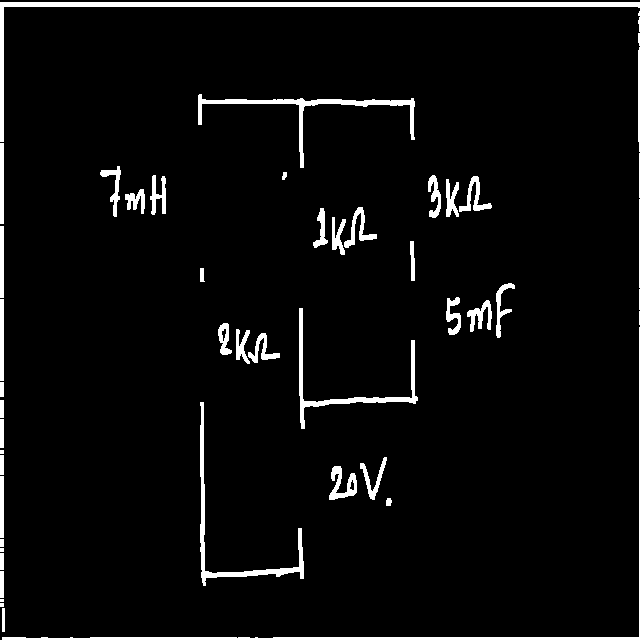 7mH
3KΩ
1KΩ
5mF
2KΩ
20V.